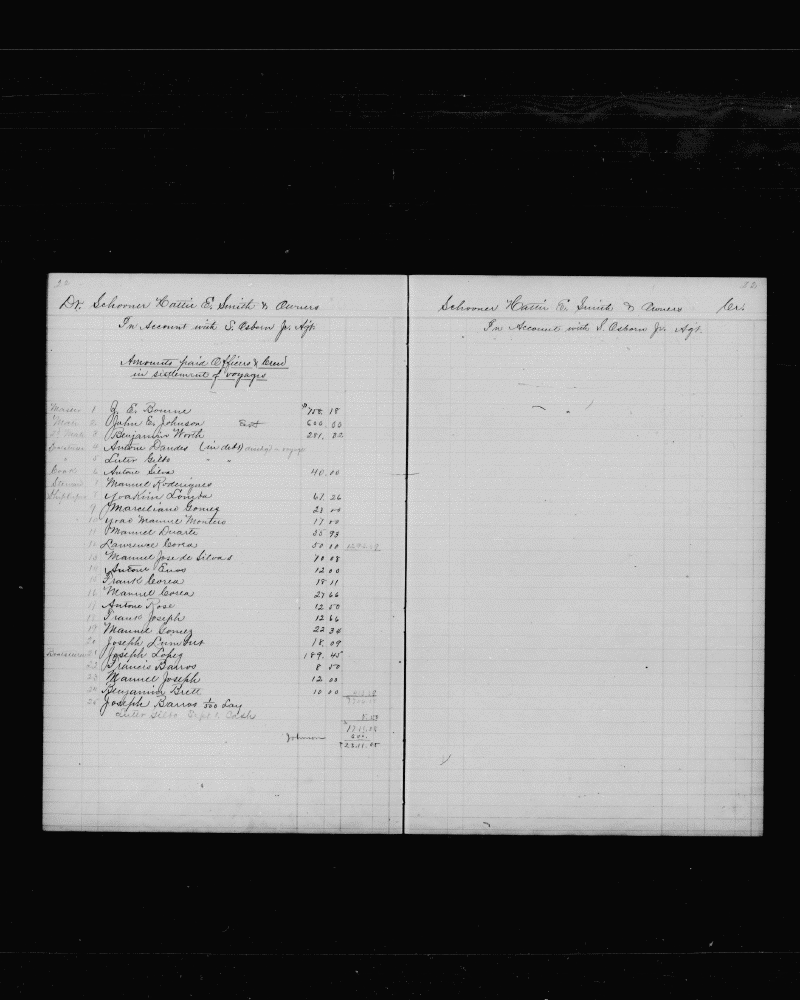 Dr. Schooner Hattie E. Smith & Owners
In Account with S. Osborn Jr. Agt.
Amounts paid Officers & Crew
in settlement of voyages
Master 1 E. Bourne $ 750.18
Mate 2 John E. Johnson 600.00
3 Benjamin Worth 281.
4 Antone Dandes (in debt)
" 5 Luter Gilbo " "
Cook 6 Antone Silva 40.00
Steward 7 Manuel Roderigues
8 Joakim Lomba 67.26
9 Marceliano Gomez 23 00
10 Joao Manuel Monteiro 17 00
11 Manuel Duarte 35 93
12 Lawrence Corea 50 10
13 Manuel Jose de Silvas 70 08
14 Antone Enos 12 00
15 Frank Corea 18 11
16 Manuel Corea 27 66
17 Antone Rose 12 50
18 Frank Joseph 12 66
19 Manuel Gomez 22 34
20 Joseph 18.09
21 Joseph Lopez 189.45
22 Francis Barros 8 50
23 Manuel Joseph 12 00
24 Benjamin Brett 10 00
25 Joseph Barros Lay
Johnson 600.
$2311.05
52
Schooner Hattie E. Smith & Owners Cr.
In Account with S. Osborn Jr. Agt.